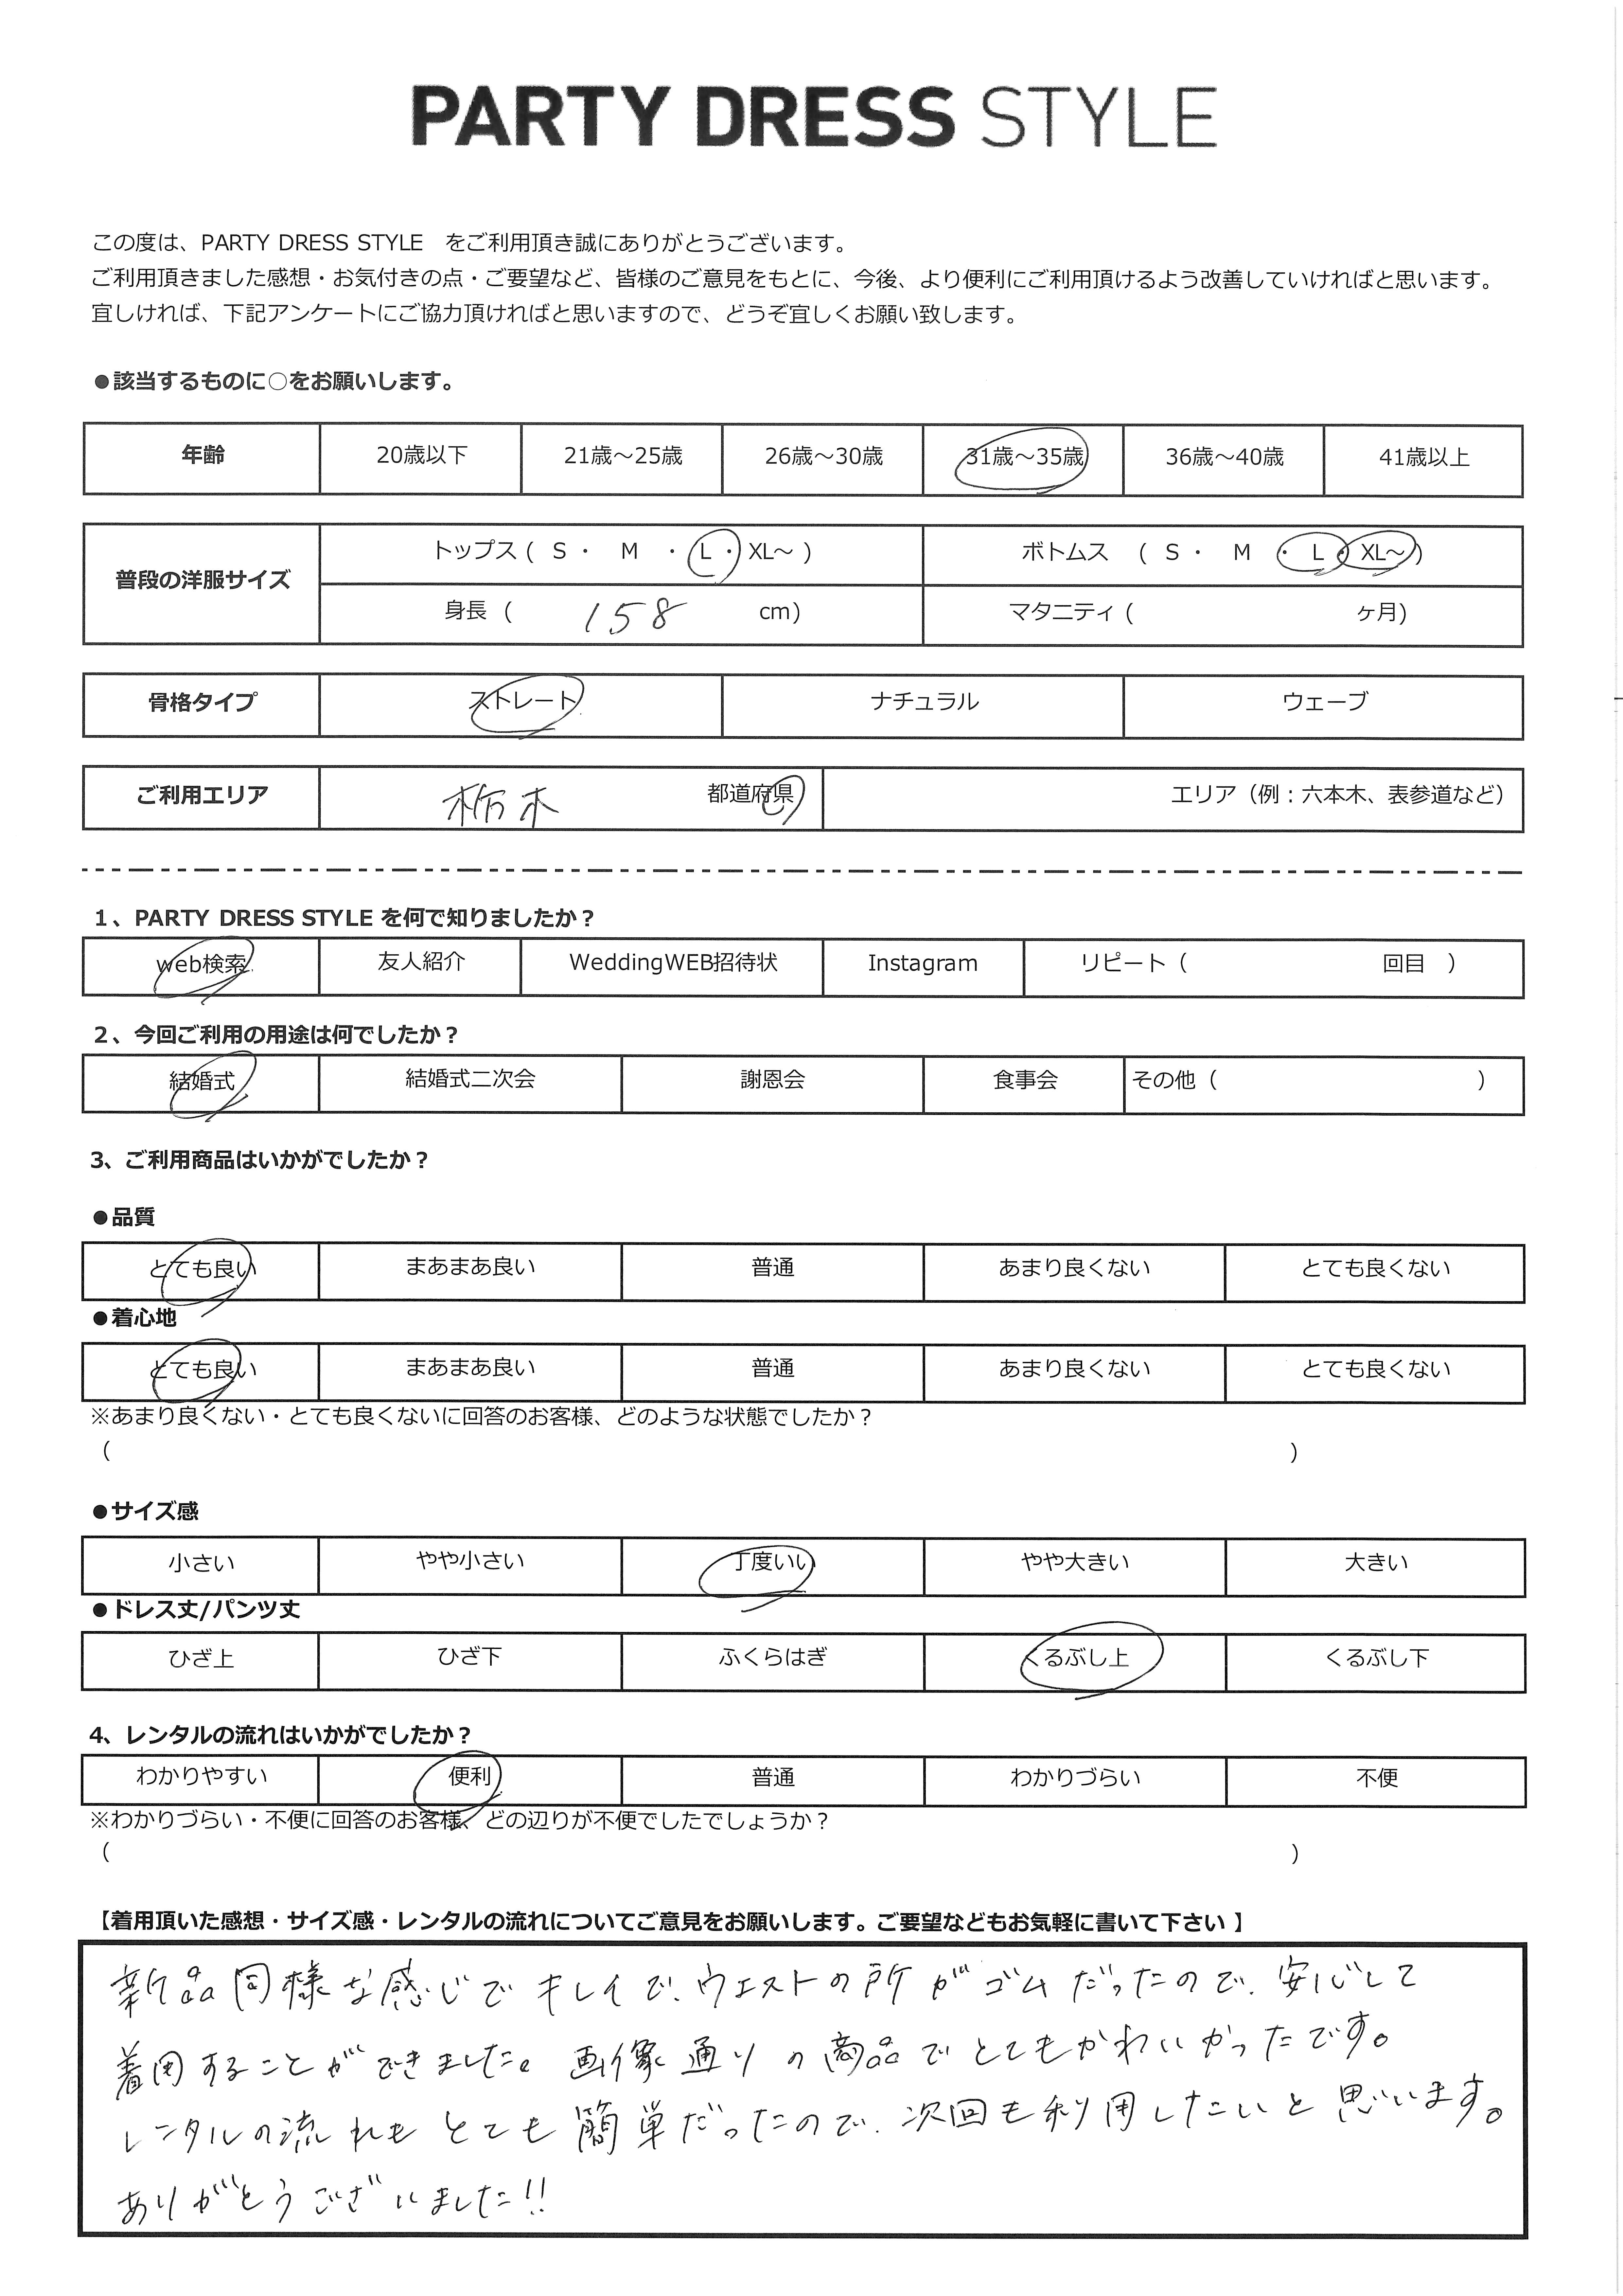 PARTY DRESS STYLE
この度は、PARTY DRESS STYLE　をご利用頂き誠にありがとうございます。
ご利用頂きました感想・お気付きの点・ご要望など、皆様のご意見をもとに、今後、より便利にご利用頂けるよう改善していければと思います。
宜しければ、下記アンケートにご協力頂ければと思いますので、どうぞ宜しくお願い致します。
●該当するものに○をお願いします。
年齢 20歳以下 21歳～25歳 26歳～30歳 31歳～35歳 36歳～40歳 41歳以上
普段の洋服サイズ
トップス ( S ・ M ・ L ・ XL～ ) ボトムス ( S ・ M ・ L ・ XL～ )
身長 ( 158 cm) マタニティ ( ヶ月)
骨格タイプ ストレート ナチュラル ウェーブ
ご利用エリア 栃木 都道府県 エリア（例：六本木、表参道など）
1、PARTY DRESS STYLE を何で知りましたか？
web検索 友人紹介 WeddingWEB招待状 Instagram リピート（ 回目 ）
2、今回ご利用の用途は何でしたか？
結婚式 結婚式二次会 謝恩会 食事会 その他（ ）
3、ご利用商品はいかがでしたか？
●品質
とても良い まあまあ良い 普通 あまり良くない とても良くない
●着心地
とても良い まあまあ良い 普通 あまり良くない とても良くない
※あまり良くない・とても良くないに回答のお客様、どのような状態でしたか？
（ ）
●サイズ感
小さい やや小さい 丁度いい やや大きい 大きい
●ドレス丈/パンツ丈
ひざ上 ひざ下 ふくらはぎ くるぶし上 くるぶし下
4、レンタルの流れはいかがでしたか？
わかりやすい 便利 普通 わかりづらい 不便
※わかりづらい・不便に回答のお客様、どの辺りが不便でしたでしょうか？
（ ）
【着用頂いた感想・サイズ感・レンタルの流れについてご意見をお願いします。ご要望などもお気軽に書いて下さい 】
新品同様な感じでキレイで、ウエストの所がゴムだったので、安心して
着用することができました。画像通りの商品でとてもかわいかったです。
レンタルの流れもとても簡単だったので、次回も利用したいと思います。
ありがとうございました!!